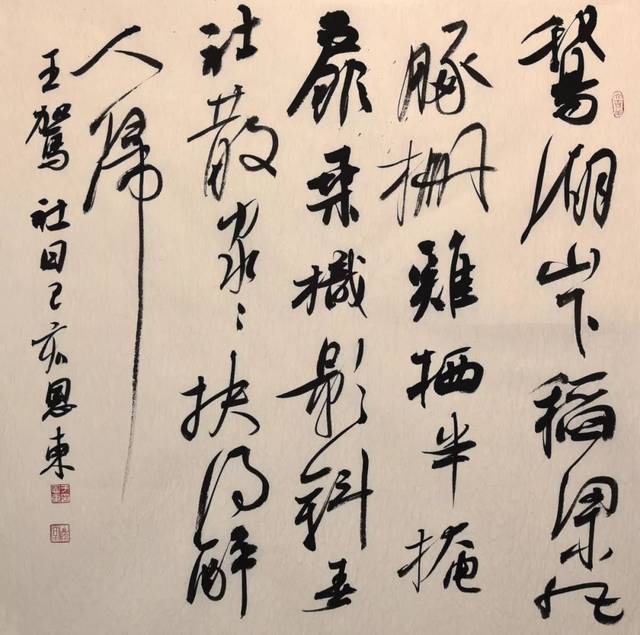 鵝湖山下稻梁肥
豚柵雞栖半掩
扉桑影斜春
社散家〻扶得醉
人歸
王駕 社日 己亥恩東